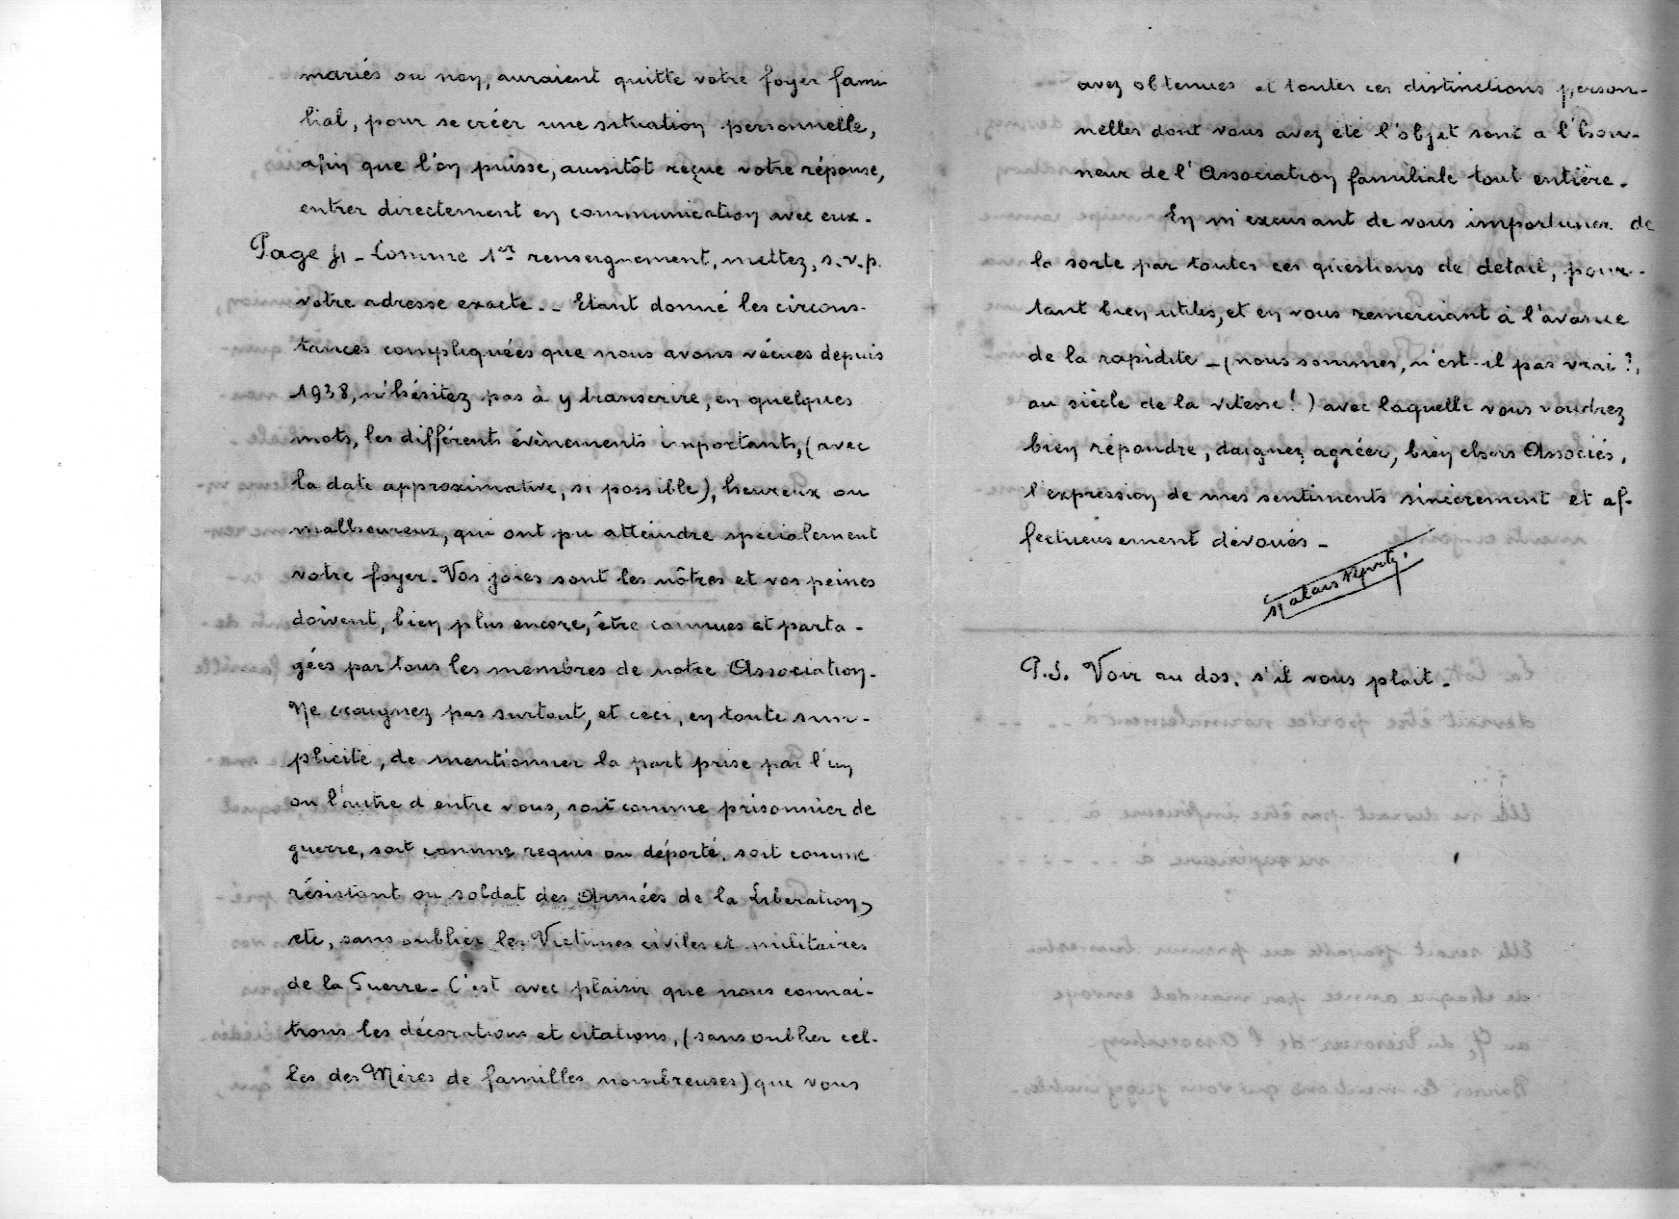 mariés ou non, auraient quitté votre foyer fami
lial, pour se créer une situation personnelle,
afin que l'on puisse, aussitôt reçue votre réponse,
entrer directement en communication avec eux.
Page 4 - Comme 1er renseignement, mettez, s.v.p.
votre adresse exacte.- Etant donné les circons-
tances compliquées que nous avons vécues depuis
1938, n'hésitez pas à y transcrire, en quelques
mots, les différents évènements importants, (avec
la date approximative, si possible), heureux ou
malheureux, qui ont pu atteindre spécialement
votre foyer. Vos joies sont les nôtres et vos peines
doivent, bien plus encore, être connues et parta-
gées par tous les membres de notre Association.
Ne craignez pas surtout, et ceci, en toute sim-
plicité, de mentionner la part prise par l'un
ou l'autre d'entre vous, soit comme prisonnier de
guerre, soit comme requis ou déporté, soit comme
résistant ou soldat des Armées de la Libération,
etc, sans oublier les Victimes civiles et militaires
de la Guerre. C'est avec plaisir que nous connai-
trons les décorations et citations, (sans oublier cel-
les des Mères de familles nombreuses) que vous
avez obtenues et toutes ces distinctions person-
nelles dont vous avez été l'objet sont à l'hon-
neur de l'Association familiale tout entière.
En m'excusant de vous importuner de
la sorte par toutes ces questions de détail, pour-
tant bien utiles, et en vous remerciant à l'avance
de la rapidité - (nous sommes, n'est-il pas vrai ?,
au siècle de la vitesse !) avec laquelle vous voudrez
bien répondre, daignez agréer, bien chers Associés,
l'expression de mes sentiments sincèrement et af-
fectueusement dévoués -
P.S. Voir au dos, s'il vous plait.